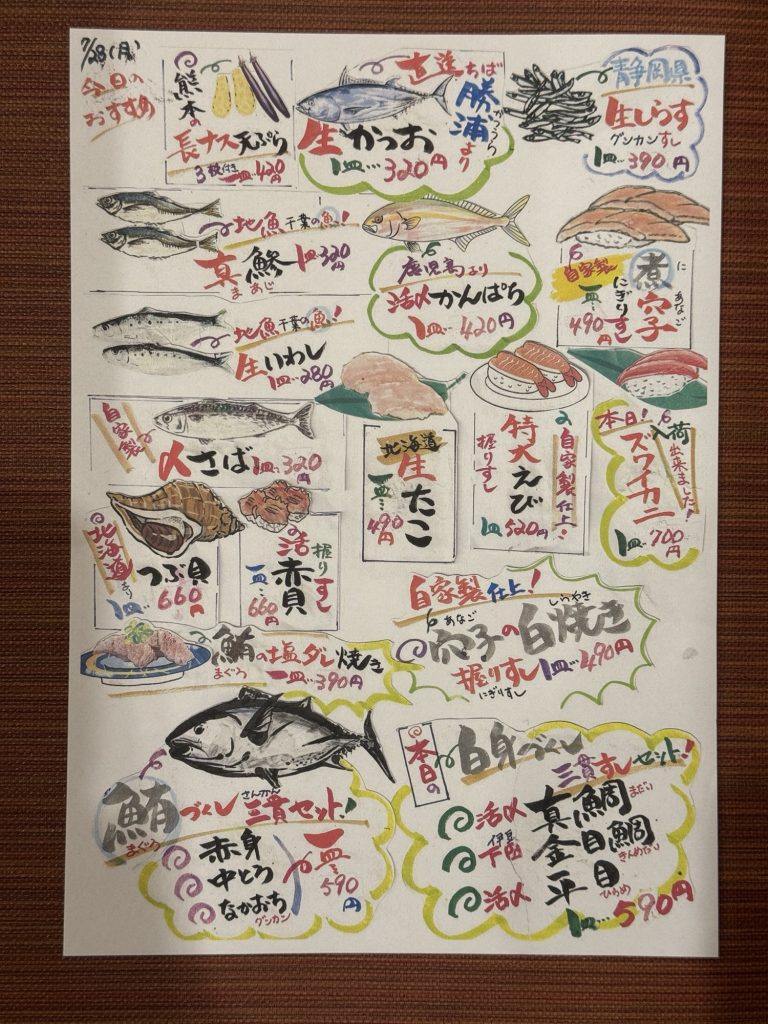 7/28(月)
今日の
おすすめ
熊本の
長ナス天ぷら
3枚付き 一皿…420円
直送ちば
勝浦より
かつうら
生かつお
1皿…320円
静岡県
生しらす
グンカンすし
1皿…390円
地魚千葉の魚!
真鯵
まあじ
1皿…320円
鹿児島より
活〆かんぱち
1皿…420円
自家製
煮穴子
に あなご
にぎりすし
一皿…490円
地魚千葉の魚!
生いわし
1皿…280円
自家製
〆さば 1皿…320円
北海道
生たこ
一皿…490円
自家製仕上!
特大えび
握りすし
1皿520円
本日!
入荷出来ました!
ズワイカニ
1皿…700円
北海道より
つぶ貝
1皿…660円
握りすし
活赤貝
一皿…660円
自家製仕上!
あなご しらやき
穴子の白焼き
握りすし 1皿…490円
にぎりすし
鮪の塩ダレ焼き
まぐろ
一皿…390円
鮪づくし三貫セット!
まぐろ さんかん
赤身
中とろ
なかおち
グンカン
一皿…590円
本日の
白身づくし
三貫すしセット!
活〆 真鯛 まだい
伊豆下田 金目鯛 きんめだい
活〆 平目 ひらめ
1皿…590円